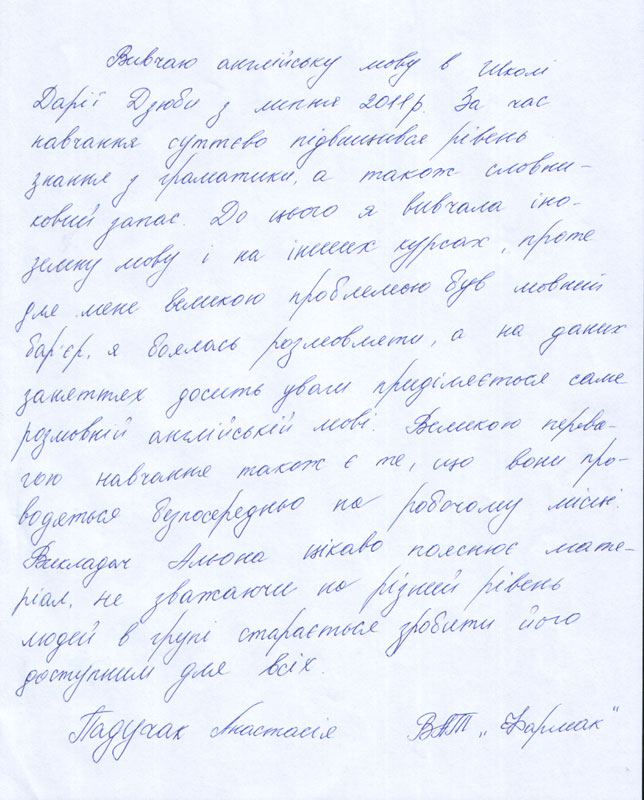 Вивчаю англійську мову в Школі
Дарії Дзюби з липня 2011р. За час
навчання суттєво підвищився рівень
знання з граматики, а також словни-
ковий запас. До цього я вивчала іно-
земну мову і на інших курсах, проте
для мене великою проблемою був мовний
бар'єр, я боялась розмовляти, а на даних
заняттях досить уваги приділяється саме
розмовній англійській мові. Великою перева-
гою навчання також є те, що вони про-
водяться безпосередньо на робочому місці.
Викладач Альона цікаво пояснює мате-
ріал, не зважаючи на різний рівень
людей в групі старається зробити його
доступним для всіх.
Падучак Анастасія ВАТ „Фармак"